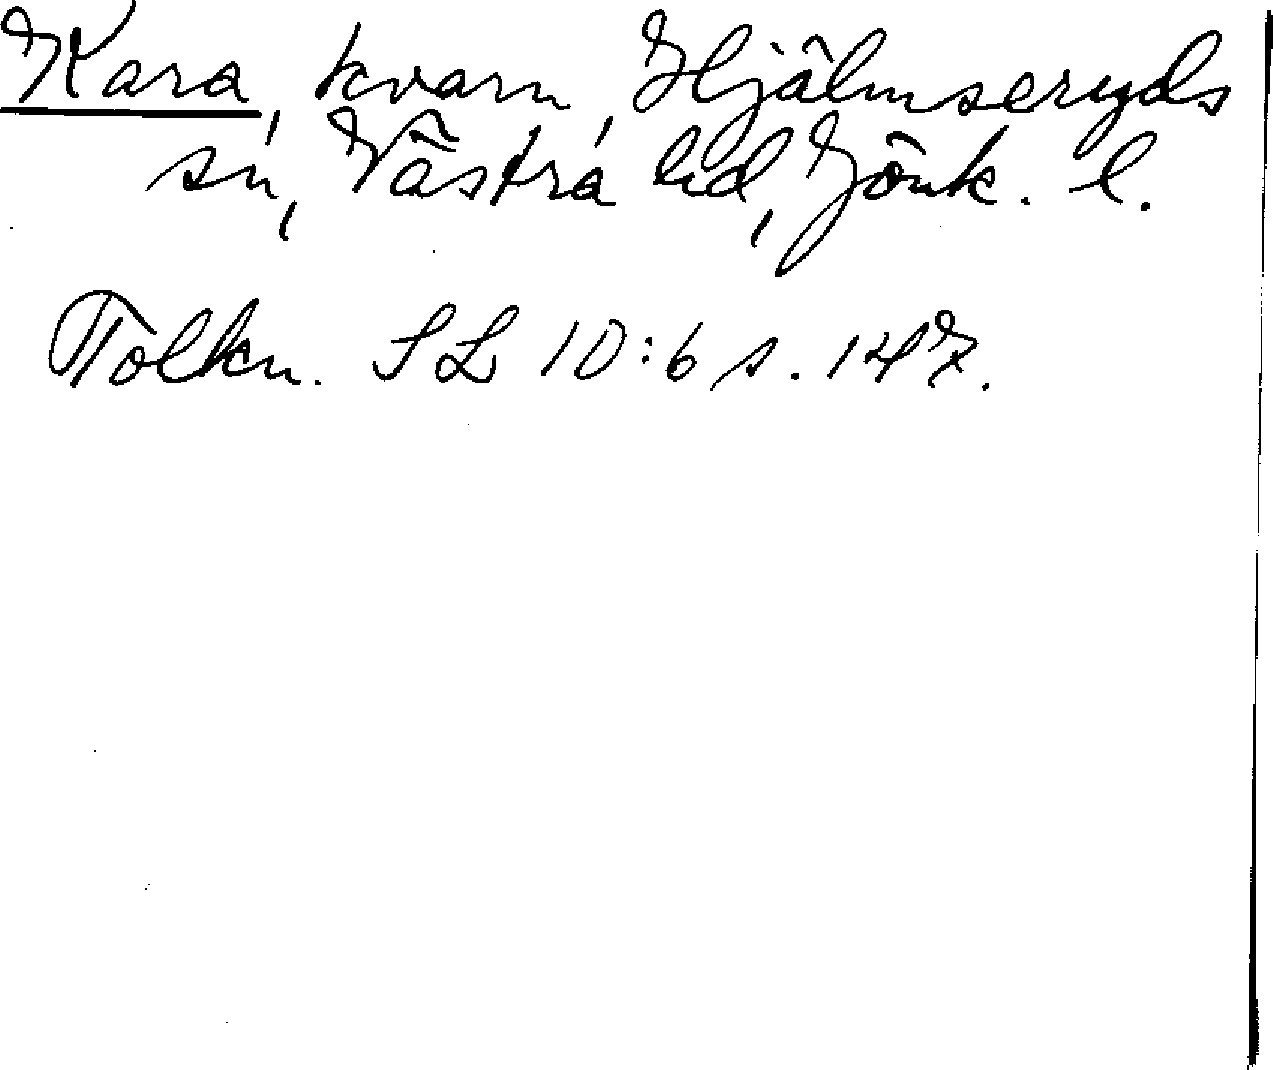 Kara, kvarn, Hjälmseryds
sn, Västra hd, Jönk. l.
Tolkn. SL 10:6 s. 147.